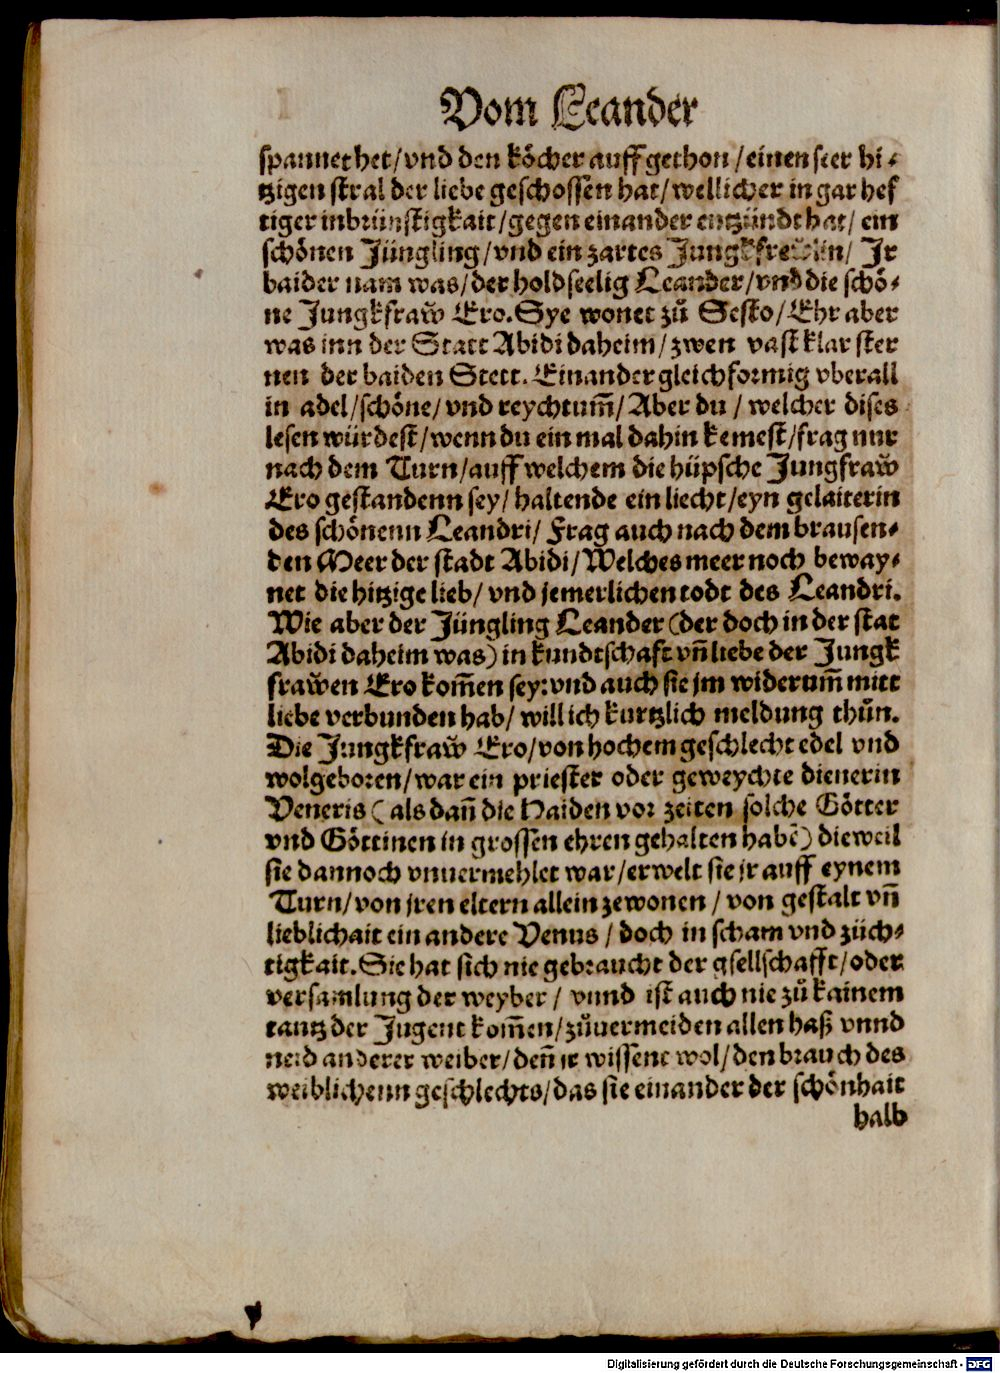 Vom Leander
spannet het/vnd den köcher auff gethon/einen seer hi⸗
tzigen stral der liebe geschossen hat/wellicher in gar hef
tiger inbrünstigkait/gegen einander entzündt hat/ ein
schönen Jüngling/vnd ein zartes Jungkfrewlin/ Jr
baider nam was/der holdseelig Leander/vnd die schö⸗
ne Jungkfraw̆ Ero. Sye wonet zů Sesto/Ehr aber
was inn der Statt Abidi daheim/zwen vast klar ster
nen der baiden Stett. Einander gleichformig vberall
in adel/schöne/vnd reychtum̃/Aber du/welcher dises
lesen würdest/wenn du ein mal dahin kemest/frag nur
nach dem Turn/auff welchem die hüpsche Jungfraw̆
Ero gestandenn sey/haltende ein liecht/eyn gelaiterin
des schönenn Leandri/ Frag auch nach dem brausen⸗
den Meer der stadt Abidi/Welches meer noch beway⸗
net die hitzige lieb/vnd jemerlichen todt des Leandri.
Wie aber der Jüngling Leander (der doch in der stat
Abidi daheim was) in kundtschaft vñ liebe der Jungk
fraw̆en Ero kom̃en sey: vnd auch sie jm widerum̃ mitt
liebe verbunden hab/will ich kurtzlich meldung thůn.
Die Jungkfraw̆ Ero/von hochem geschlecht edel vnd
wolgeboren/war ein priester oder geweychte dienerin
Veneris (als dañ die Haiden vor zeiten solche Götter
vnd Göttinen in grossen ehren gehalten habẽ) dieweil
sie dannoch vnuermehlet war/erwelt sie jr auff eynem
Turn/von jren eltern allein zewonen/von gestalt vñ
lieblichait ein andere Venus/doch in scham vnd züch⸗
tigkait. Sie hat sich nie gebraucht der gsellschafft/oder
versamlung der weyber/ vnnd ist auch nie zů kainem
tantz der Jugent kom̃en/zůuermeiden allen haß vnnd
neid anderer weiber/deñ jr wissent wol/den brauch des
weiblichenn geschlechts/das sie einander der schönhait
halb
Digitalisierung gefördert durch die Deutsche Forschungsgemeinschaft - DFG